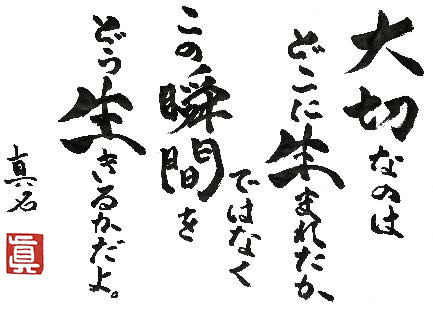 大切なのは
どこに生まれたか、
ではなく
この瞬間を
どう生きるかだよ。
真名
眞